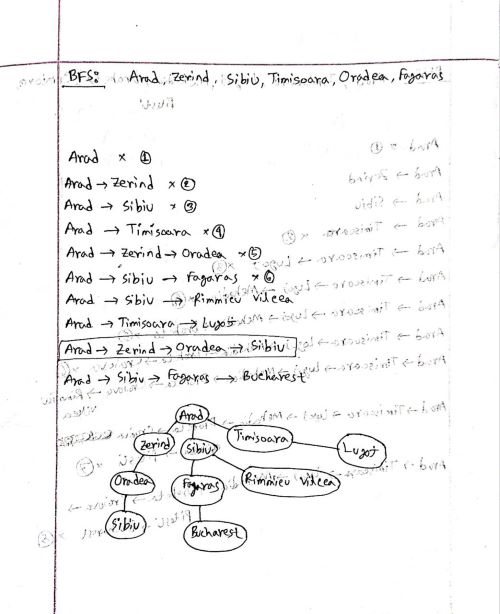 BFS: Arad, Zerind, Sibiu, Timisoara, Oradea, Fagaras
Arad × ①
Arad → Zerind × ②
Arad → Sibiu × ③
Arad → Timisoara × ④
Arad → Zerind → Oradea × ⑤
Arad → Sibiu → Fagaras × ⑥
Arad → Sibiu → Rimmicu Vilcea
Arad → Timisoara → Lugoj
Arad → Zerind → Oradea → Sibiu
Arad → Sibiu → Fagaras → Bucharest
Arad
Zerind Sibiu Timisoara Lugoj
Oradea Fagaras Rimmicu Vilcea
Sibiu Bucharest